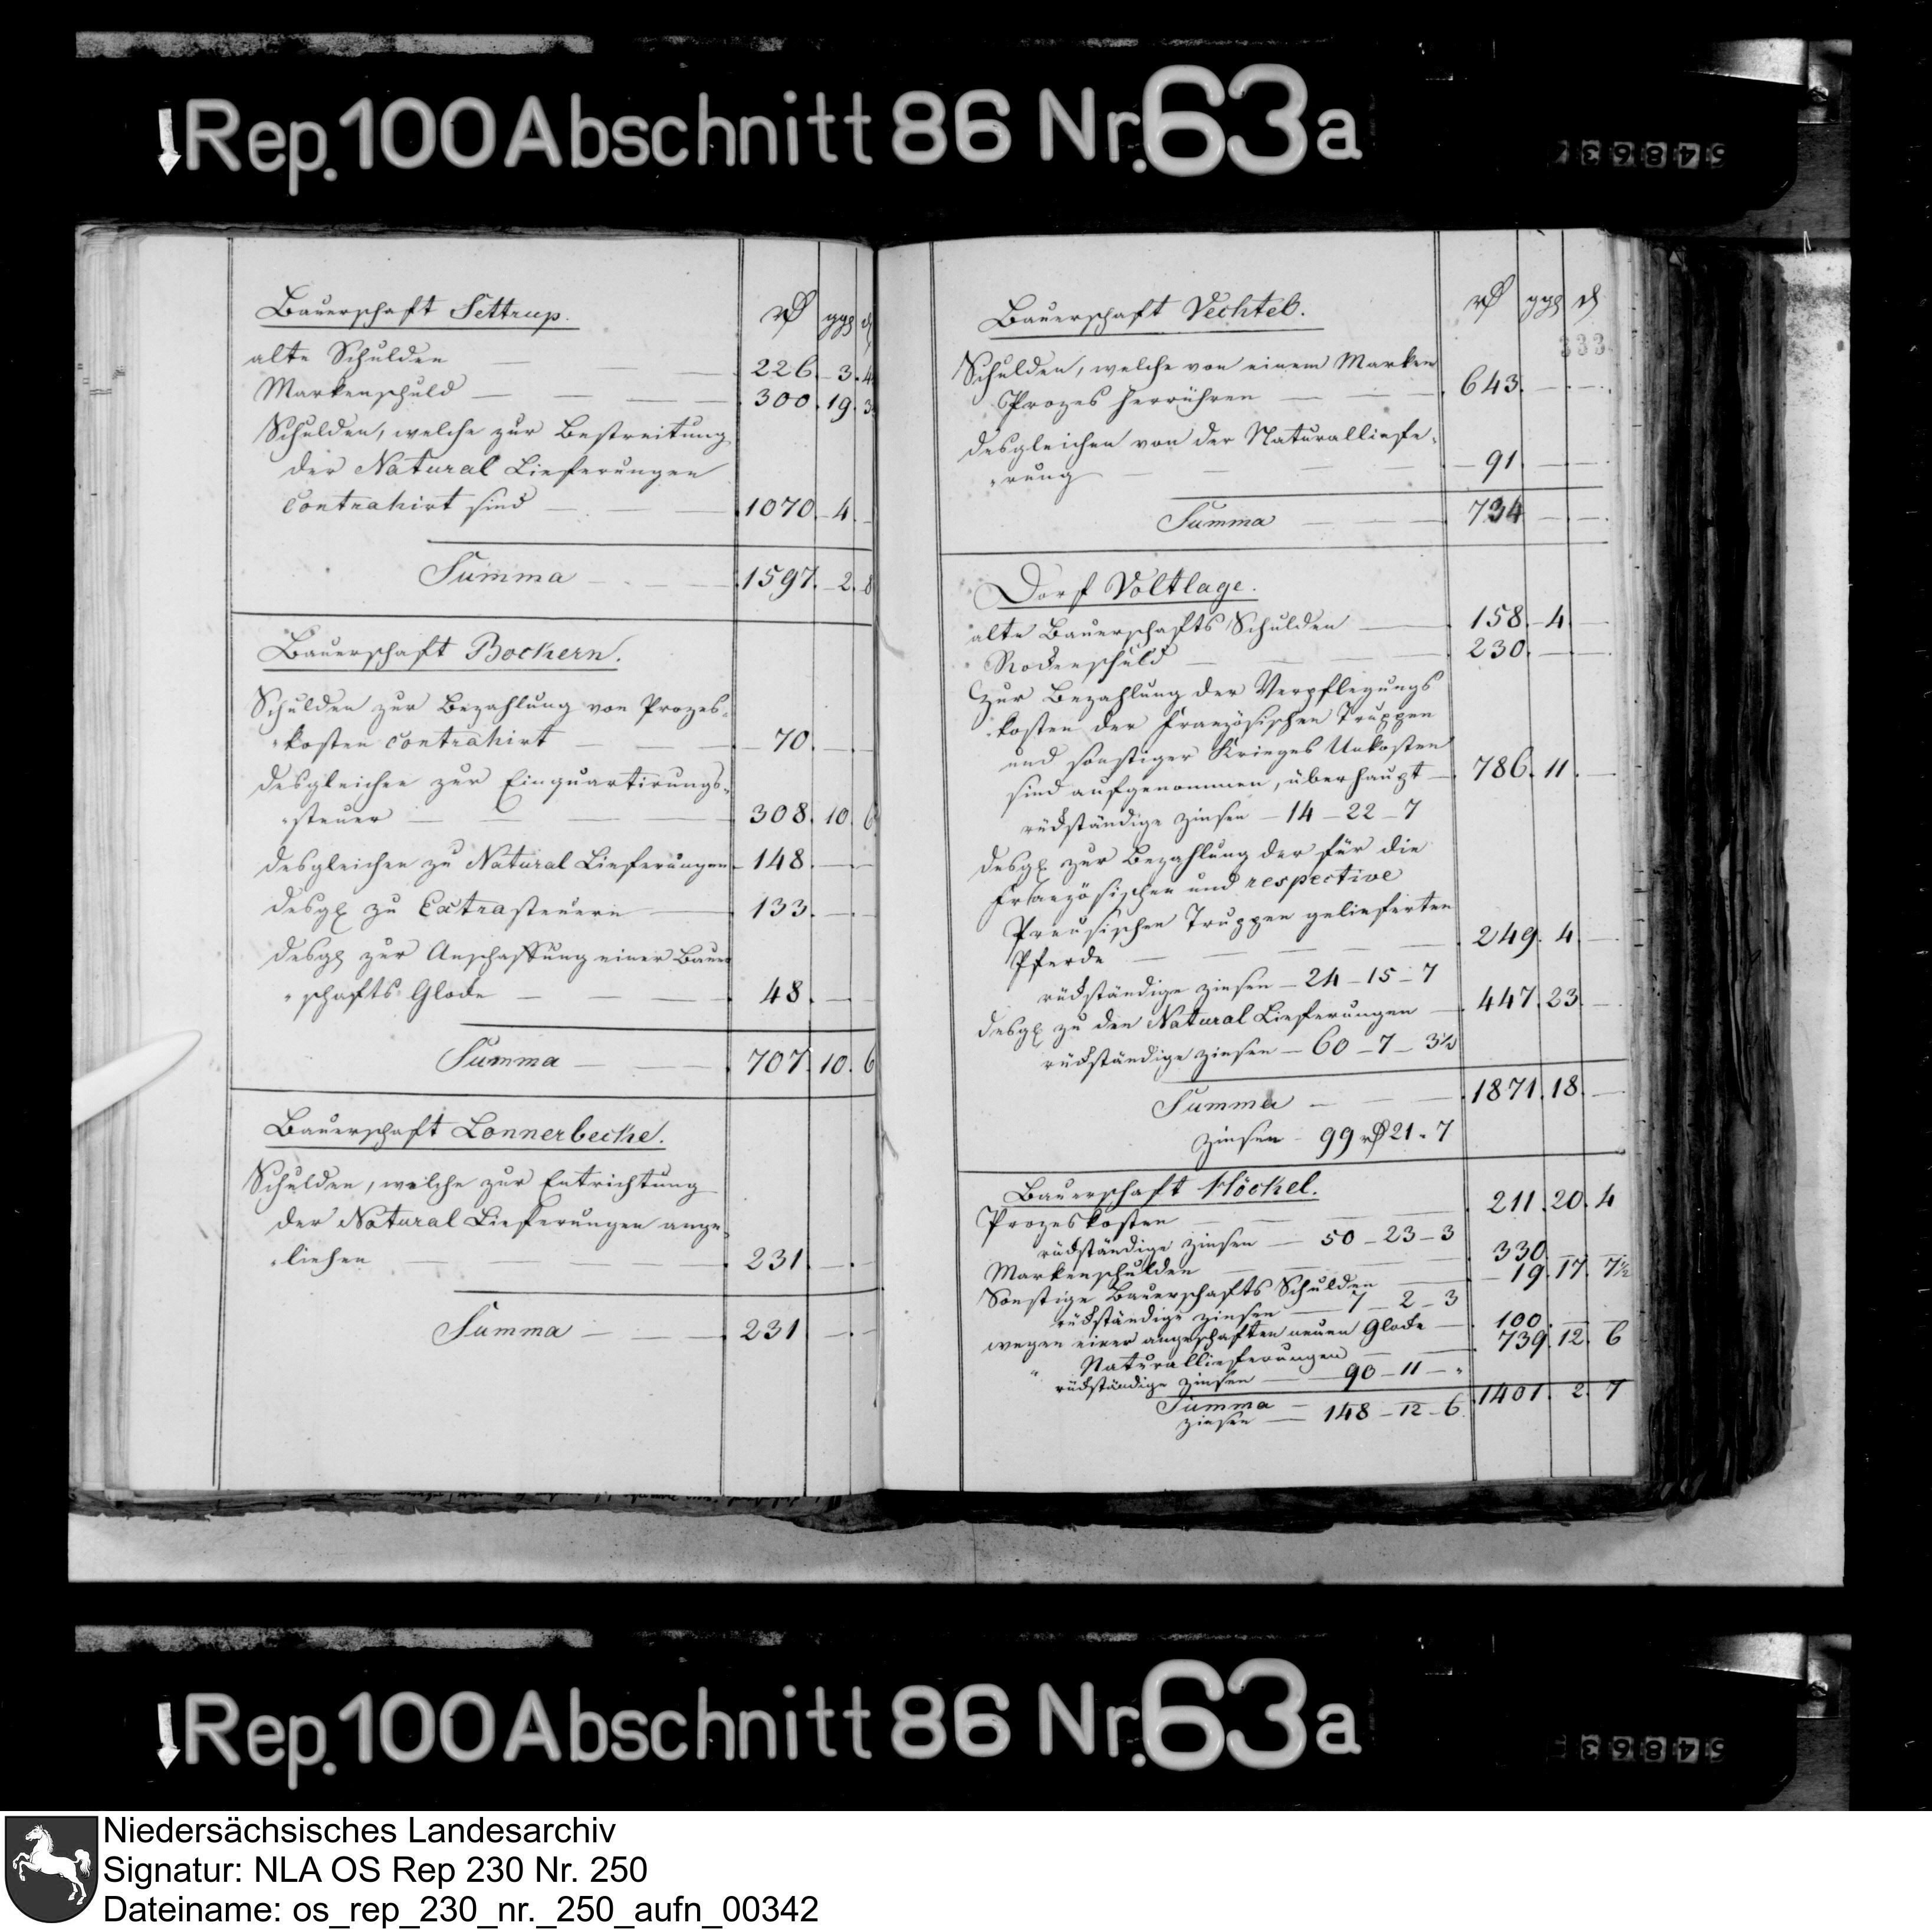 Rep. 100 Abschnitt 86 Nr. 63a
54863
Bauerschaft Settrup.
rthl ggl d
alte Schulden — — 226. 3. 4
Markenschuld — — — 300. 19. 3
Schulden, welche zur Bestreitung
der Natural Lieferungen
contrahirt sind — — — 1070. 4. —
Summa — — 1597. 2. 8
Bauerschaft Bockern.
Schulden zur Bezahlung von Prozes-
kosten contrahirt — — 70. — —
desgleichen zur Einquartirungs-
steuer — — — 308. 10. 6
desgleichen zu Natural Lieferungen 148. — —
desgl zu Extrasteuern — 133. — —
desgl zur Anschaffung einer Bauer
schafts Glocke — — — 48. — —
Summa — — 707. 10. 6
Bauerschaft Lonnerbecke.
Schulden, welche zur Entrichtung
der Natural Lieferungen ange-
liehen — — — 231. — —
Summa — — 231. — —
Bauerschaft Vechtel.
rthl ggl d
333
Schulden, welche von einem Marken
Prozes herrühren — — 643. — —
desgleichen von der Naturalliefe-
rung — — 91. — —
Summa — — 734 — —
Dorf Voltlage.
alte Bauerschafts Schulden — 158. 4. —
Rockenschuld — — 230. — —
Zur Bezahlung der Verpflegungs
kosten der französischen Truppen
und sonstiger Krieges Unkosten
sind aufgenommen, überhaupt — 786. 11. —
rückständige Zinsen — 14 — 22 — 7
desgl zur Bezahlung der für die
französischen und respective
Preusischen Truppen gelieferten
Pferde — — — 249. 4. —
rückständige Zinsen — 24 — 15 — 7
desgl zu den Natural Lieferungen — 447. 23. —
rückständige Zinsen — 60 — 7 — 3½
Summa — — 1871. 18. —
Zinsen - 99 rthl 21 - 7
Bauerschaft Höckel.
Prozeskosten — — — 211. 20. 4
rückständige Zinsen — 50 — 23 — 3
Markenschulden — — 330. — —
Sonstige Bauerschafts Schulden — 19. 17. 7½
rückständige Zinsen — 7 — 2 — 3
wegen einer angeschaften neuen Glocke — 100. — —
" Naturallieferungen — — 739. 12. 6
rückständige Zinsen — 90 — 11 — "
Summa — 1401. 2. 7
Zinsen — 148 — 12 — 6.
Rep. 100 Abschnitt 86 Nr. 63a
54863
Niedersächsisches Landesarchiv
Signatur: NLA OS Rep 230 Nr. 250
Dateiname: os_rep_230_nr._250_aufn_00342